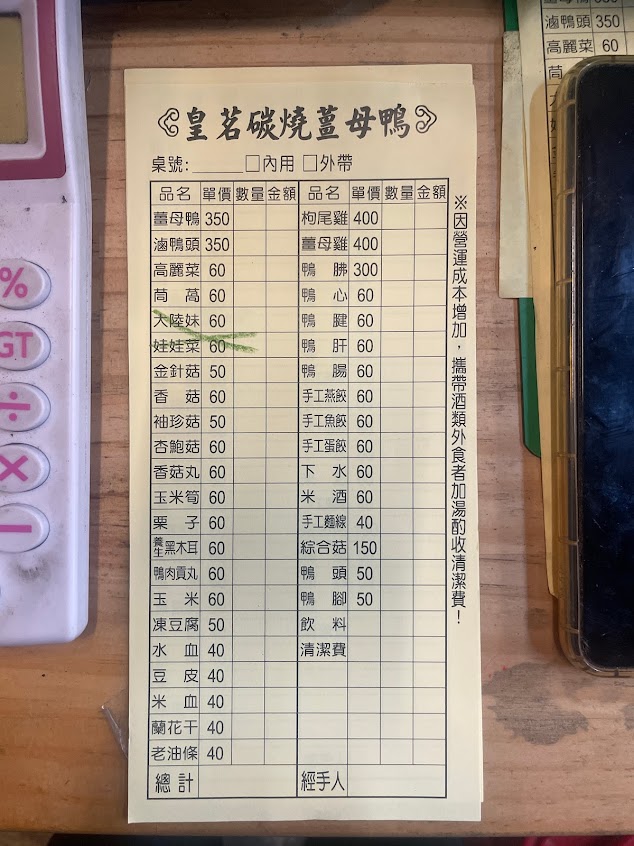 皇茗碳燒薑母鴨
桌號:_____ □內用 □外帶
品名 單價 數量 金額 品名 單價 數量 金額
薑母鴨 350 枸尾雞 400
滷鴨頭 350 薑母雞 400
高麗菜 60 鴨 胇 300
茼 萵 60 鴨 心 60
大陸妹 60 鴨 腱 60
娃娃菜 60 鴨 肝 60
金針菇 50 鴨 腸 60
香 菇 60 手工燕餃 60
袖珍菇 50 手工魚餃 60
杏鮑菇 60 手工蛋餃 60
香菇丸 60 下 水 60
玉米筍 60 米 酒 60
栗 子 60 手工麵線 40
養生黑木耳 60 綜合菇 150
鴨肉貢丸 60 鴨 頭 50
玉 米 60 鴨 腳 50
凍豆腐 50 飲 料
水 血 40 清潔費
豆 皮 40
米 血 40
蘭花干 40
老油條 40
總 計 經手人
※因營運成本增加，攜帶酒類外食者加湯酌收清潔費！
滷鴨頭 350
高麗菜 60